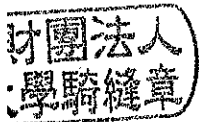 財團法人
學騎縫章